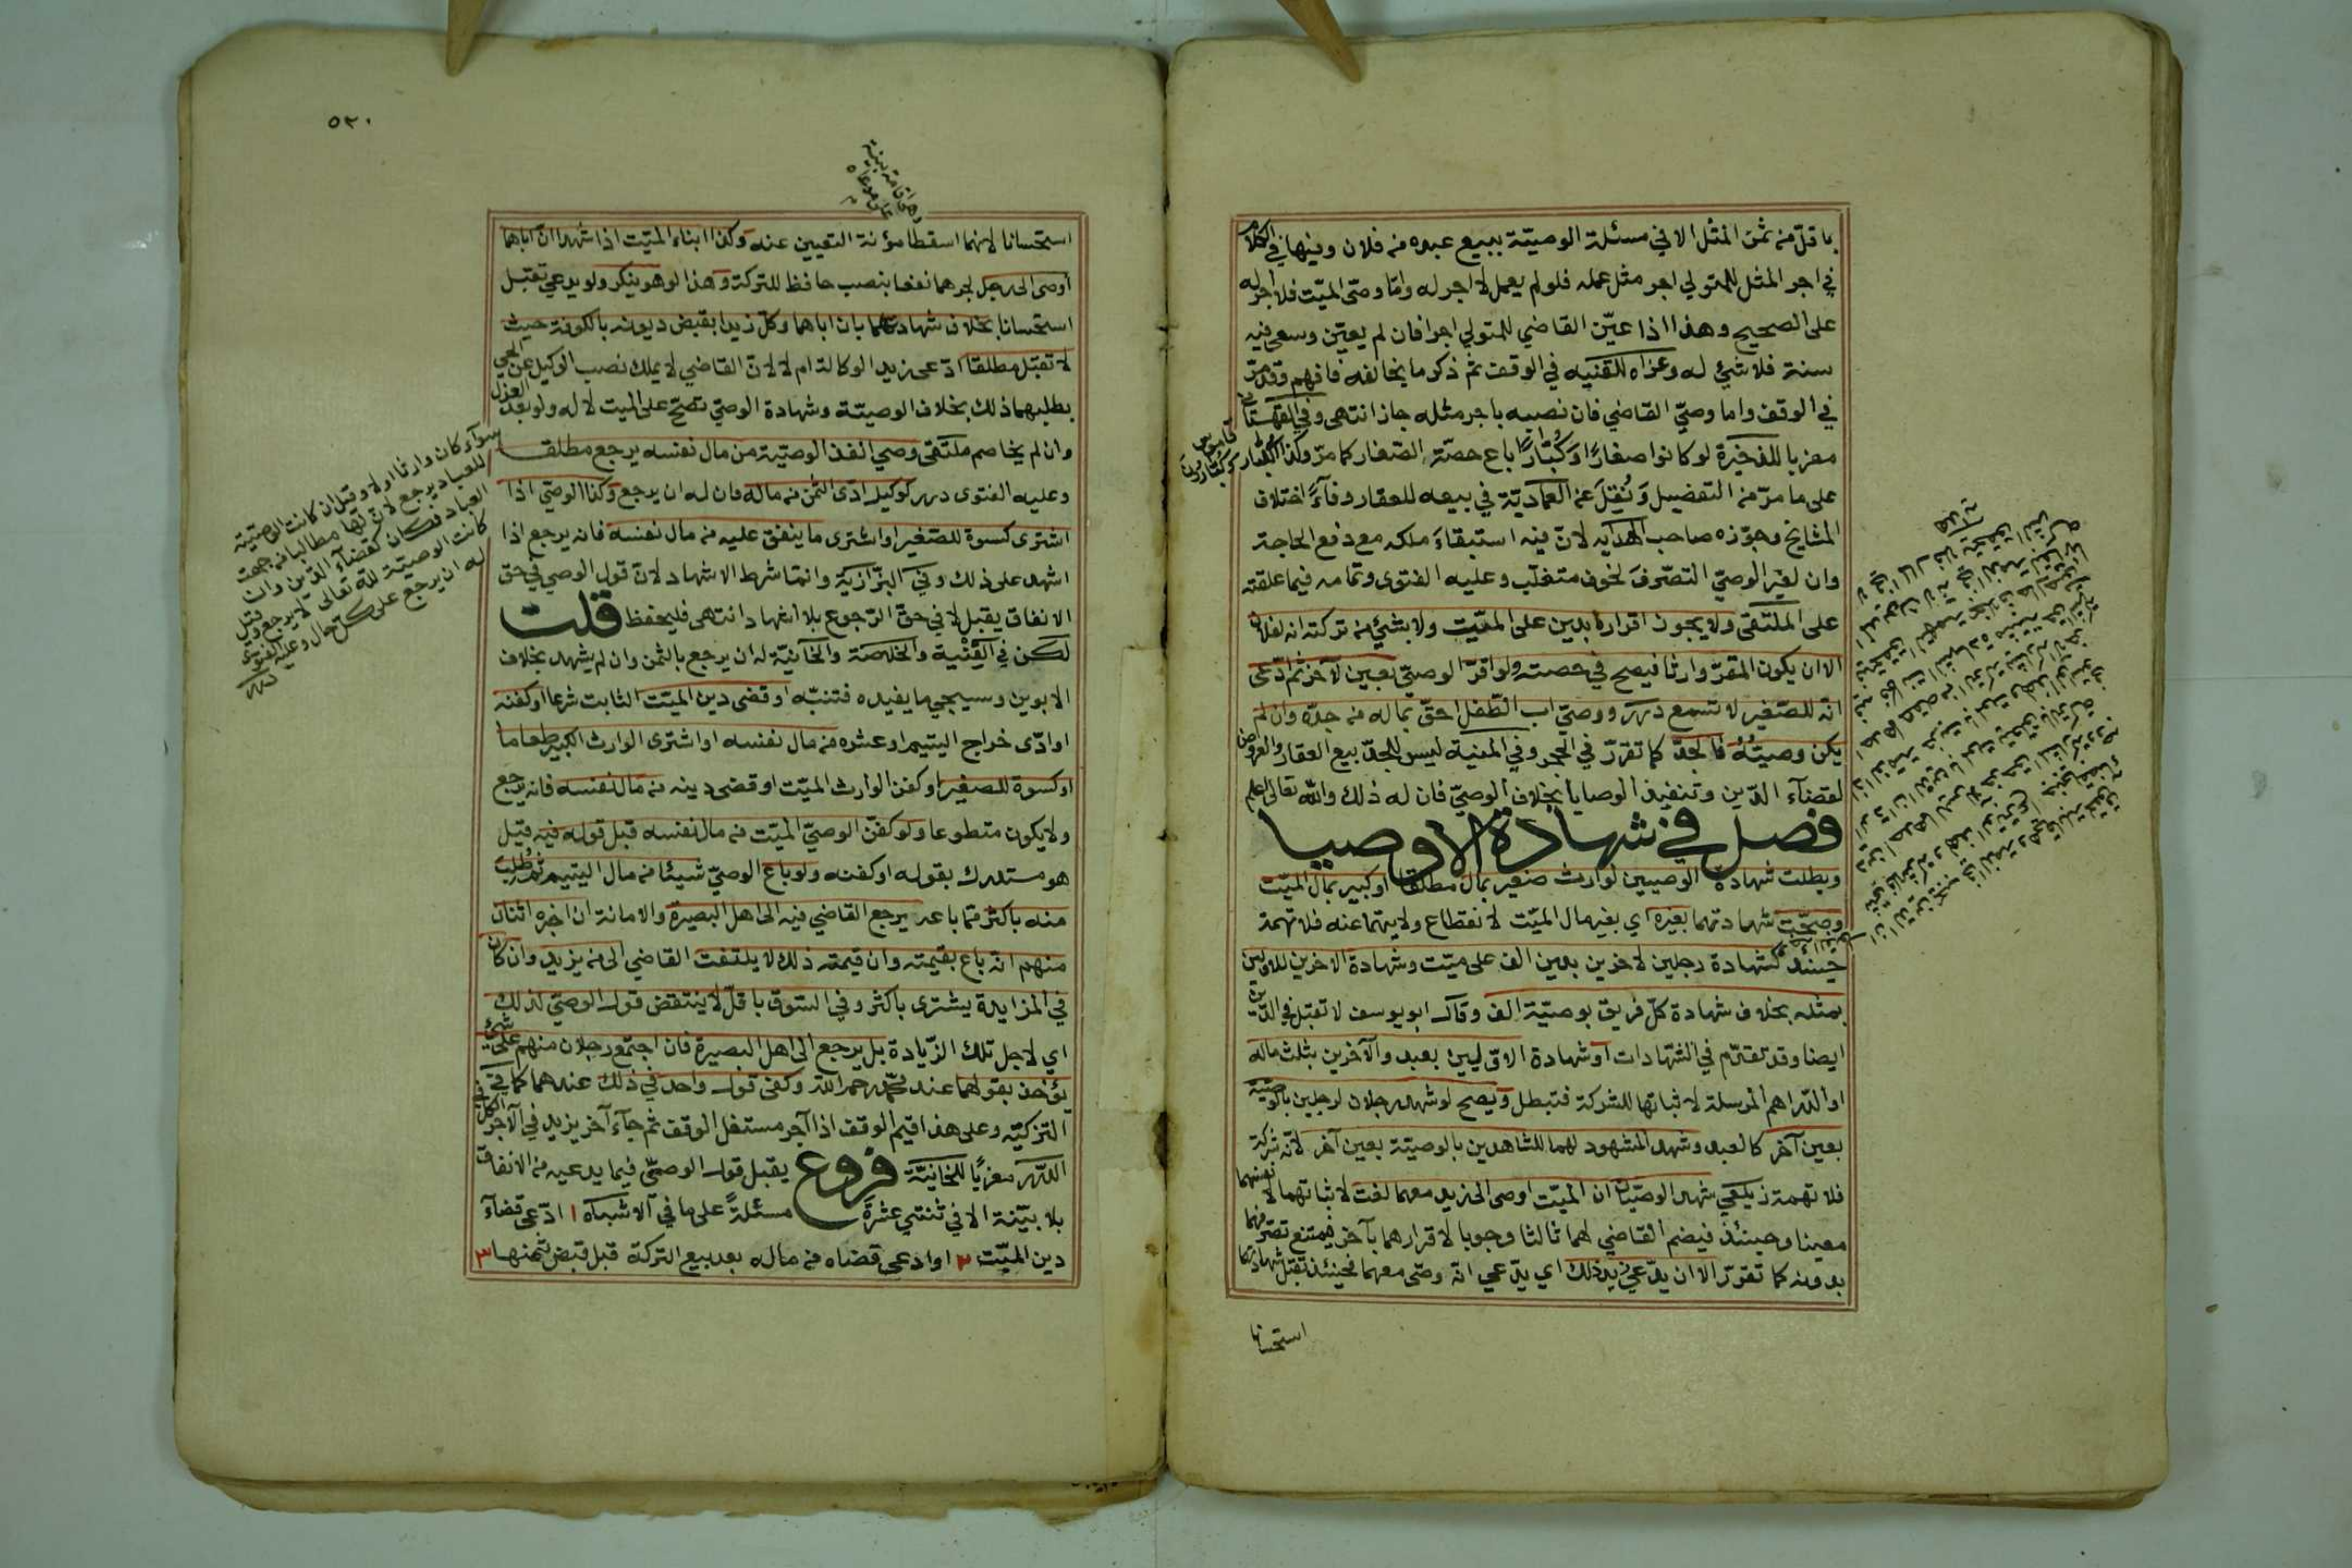 باقل من ثمن المثل الا في مسئلة الوصيّة ببيع عبده من فلان وفيها في الكلام
في اجر المثل للمتولي اجر مثل عمله فلو لم يعمل لا اجر له وامّا وصّى الميّت فلا اجر له
على الصحيح وهذا اذا عيّن القاضي للمتولي اجرا فان لم يعيّن وسعى فيه
سنة فلا شئ له وعزاه للقنيه في الوقف ثم ذكر ما يخالفه فافهم وقد مرّ
في الوقف واما وصيّ القاضي فان نصبه باجر مثله جاز انتهى وفي القهستاني
معزيا للذخيرة لو كانوا صغارًا وكُبّارًا باع حصّة الصّغار كما مرّ وكذا الكبار
على ما مرّ من التفصيل ونُقِلَ عن العماديّة في بيعه للعقار وفاءً اختلاف
المشايخ وجوّزه صاحب الهدايه لانّ فيه استبقاءَ ملكه مع دفع الحاجة
وان لغير الوصيّ التصّرفَ لخوف متغلّب وعليه الفتوى وتمامه فيما علقته
على الملتقى ولا يجوز اقراره بدين على الميّت ولا بشئ من تركته انه لفلان
الا ان يكون المقرّ وارثا فيصح في حصته ولو اقرّ الوصيّ بعين لآخر ثم ادّعى
انّه للصّغير لا تسمع درر ووصيّ اب الطّفل احقّ بماله من جدّه وان لم
يكن وصيّتُهُ فالجدّ كما تقرّر في الحجر وفي المنية ليس للجدّ بيع العقار والعروض
لقضآء الدّين وتنفيذ الوصايا بخلاف الوصيّ فان له ذلك والله تعالى اعلم
فصل في شهادة الاوصيا
وبطلت شهادة الوصيين لوارث صغير بمال مطلقا او كبير بمال الميّت
وصحّت شهادتهما بغيره اي بغير مال الميّت لانقطاع ولايتهما عنه فلا تهمة
حينئذ كشهادة رجلين لاخرين بدين الف على ميّت وشهادة الاخرين للاولين
بمثله بخلاف شهادة كلّ فريق بوصيّة الف وقال ابو يوسف لا تقبل في الدّين
ايضا وقد تقدّم في الشّهادات او شهادة الاوّليين بعبد والآخرين بثلث ماله
او الدّراهم المرسلة لاثباتها للشركة فتبطل ويصح لو شهد رجلان لرجلين بالوصيّة
بعين آخر كالعبد وشهد المشهود لهما للشاهدين بالوصيّة بعين آخر لانّه لا شركة
فلا تهمة زيلعي شهد الوصيّان ان الميّت اوصى الى زيد معهما لغت لاثباتهما لانفسهما
معينا وحينئذ فيضم القاضي لهما ثالثا وجوبا لاقرارهما بآخر فيمتنع تصرّفهما
بدونه كما تقرّر الا ان يدّعى زيد ذلك اي يدّعي انّه وصّى معهما فحينئذ تقبل شهادتهما
استحسانا
٥٣٠
استحسانا لانهما اسقطا مؤنة التعيين عنه وكذا ابناء الميّت اذا شهدا ان اباهما
اوصى الى رجل لجرهما نفعا بنصب حافظ للتركة وهذا لو هو ينكر ولو يدعي تقبل
استحسانا بخلاف شهادتهما بان اباهما وكّل زيدا بقبض ديونه بالكوفة حيث
لا تقبل مطلقا ادّعى زيد الوكالة ام لا لانّ القاضي لا يملك نصب الوكيل عن الحي
بطلبهما ذلك بخلاف الوصيّة وشهادة الوصيّ تصحّ على الميت لا له ولو بعد العزل
وان لم يخاصم ملتقى وصي انفذ الوصيّة من مال نفسه يرجع مطلقا
وعليه الفتوى درر كوكيل ادّى الثمن من ماله فان له ان يرجع وكذا الوصيّ اذا
اشترى كسوة للصّغير او اشترى ما ينفق عليه من مال نفسه فانه يرجع اذا
اشهد على ذلك وفي البزّازيّة وانمّا شرط الاشهاد لانّ قول الوصي في حق
الانفاق يقبل لا في حقّ الرّجوع بلا اشهاد انتهى فليحفظ قلت
لكن في القنية والخلاصة والخآنيّة له ان يرجع بالثمن وان لم يشهد بخلاف
الابوين وسيجي ما يفيده فتنبّه او قضى دين الميّت الثابت شرعا او كفنه
او ادّى خراج اليتيم او عشره من مال نفسه او اشترى الوارث الكبير طعاما
او كسوة للصغير او كفن الوارث الميّت او قضى دينه من مال نفسه فانه يرجع
ولا يكون متطوعا ولو كفّن الوصيّ الميّت من مال نفسه قبل قوله فيه قيل
هو مستدرك بقوله او كفنه ولو باع الوصيّ شيئا من مال اليتيم ثم طُلِبَ
منه باكثر ممّا باعه يرجع القاضي فيه الى اهل البصيرة والامانة ان اخبره اثنان
منهم انّه باع بقيمته وان قيمته ذلك لا يلتفت القاضي الى من يزيد وان كان
في المزايدة يشترى باكثر وفي السّوق باقلّ لا ينتقض قول الوصيّ لذلك
اي لاجل تلك الزّيادة بل يرجع الى اهل البصيرة فان اجتمع رجلان منهم على شئ
يؤخذ بقولهما عند محمّد رحمه الله وكفى قول واحد في ذلك عندهما كما في
التزكيّه وعلى هذا قيّم الوقف اذا آجر مستغل الوقف ثم جآء آخر يزيد في الآجر الكل في
الدّرر معزيًا للخانيّة فروع يقبل قول الوصّى فيما يدعيه من الانفاق
بلا بيّنة الا في ثنتي عشرة مسئلةً على ما في الاشباه ١ ادّعى قضآء
دين الميّت ٢ او ادعى قضاه من ماله بعد بيع التركة قبل قبض ثمنها ٣
سوآء كان وارثا او لا وقيل ان كانت الوصّية
للعباد يرجع لانّ لها مطالبا من جهت
العباد فكان كقضآء الدّين وان
كانت الوصيّة لله تعالى لا يرجع وقيل
له ان يرجع على كل حال وعليه الفتوى
درر